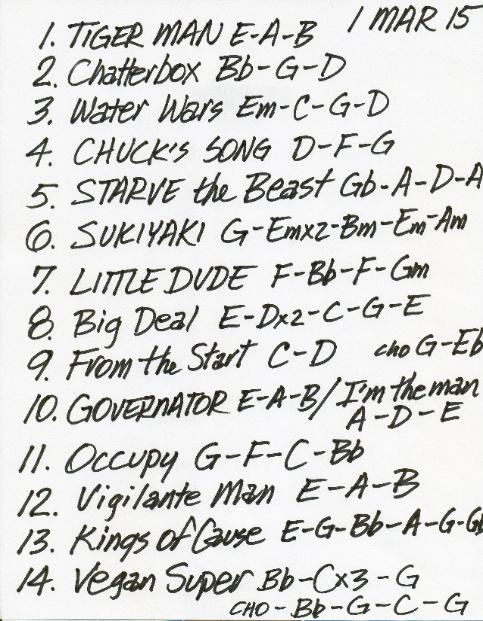 1 MAR 15
1. TIGER MAN E-A-B
2. Chatterbox Bb-G-D
3. Water Wars Em-C-G-D
4. CHUCK'S SONG D-F-G
5. STARVE the Beast Gb-A-D-A
6. SUKIYAKI G-Emx2-Bm-Em-Am
7. LITTLE DUDE F-Bb-F-Gm
8. Big Deal E-Dx2-C-G-E
9. From the Start C-D cho G-Eb
10. GOVERNATOR E-A-B/I'm the man
A-D-E
11. Occupy G-F-C-Bb
12. Vigilante Man E-A-B
13. Kings of Cause E-G-Bb-A-G-Gb
14. Vegan Super Bb-Cx3-G
CHO-Bb-G-C-G